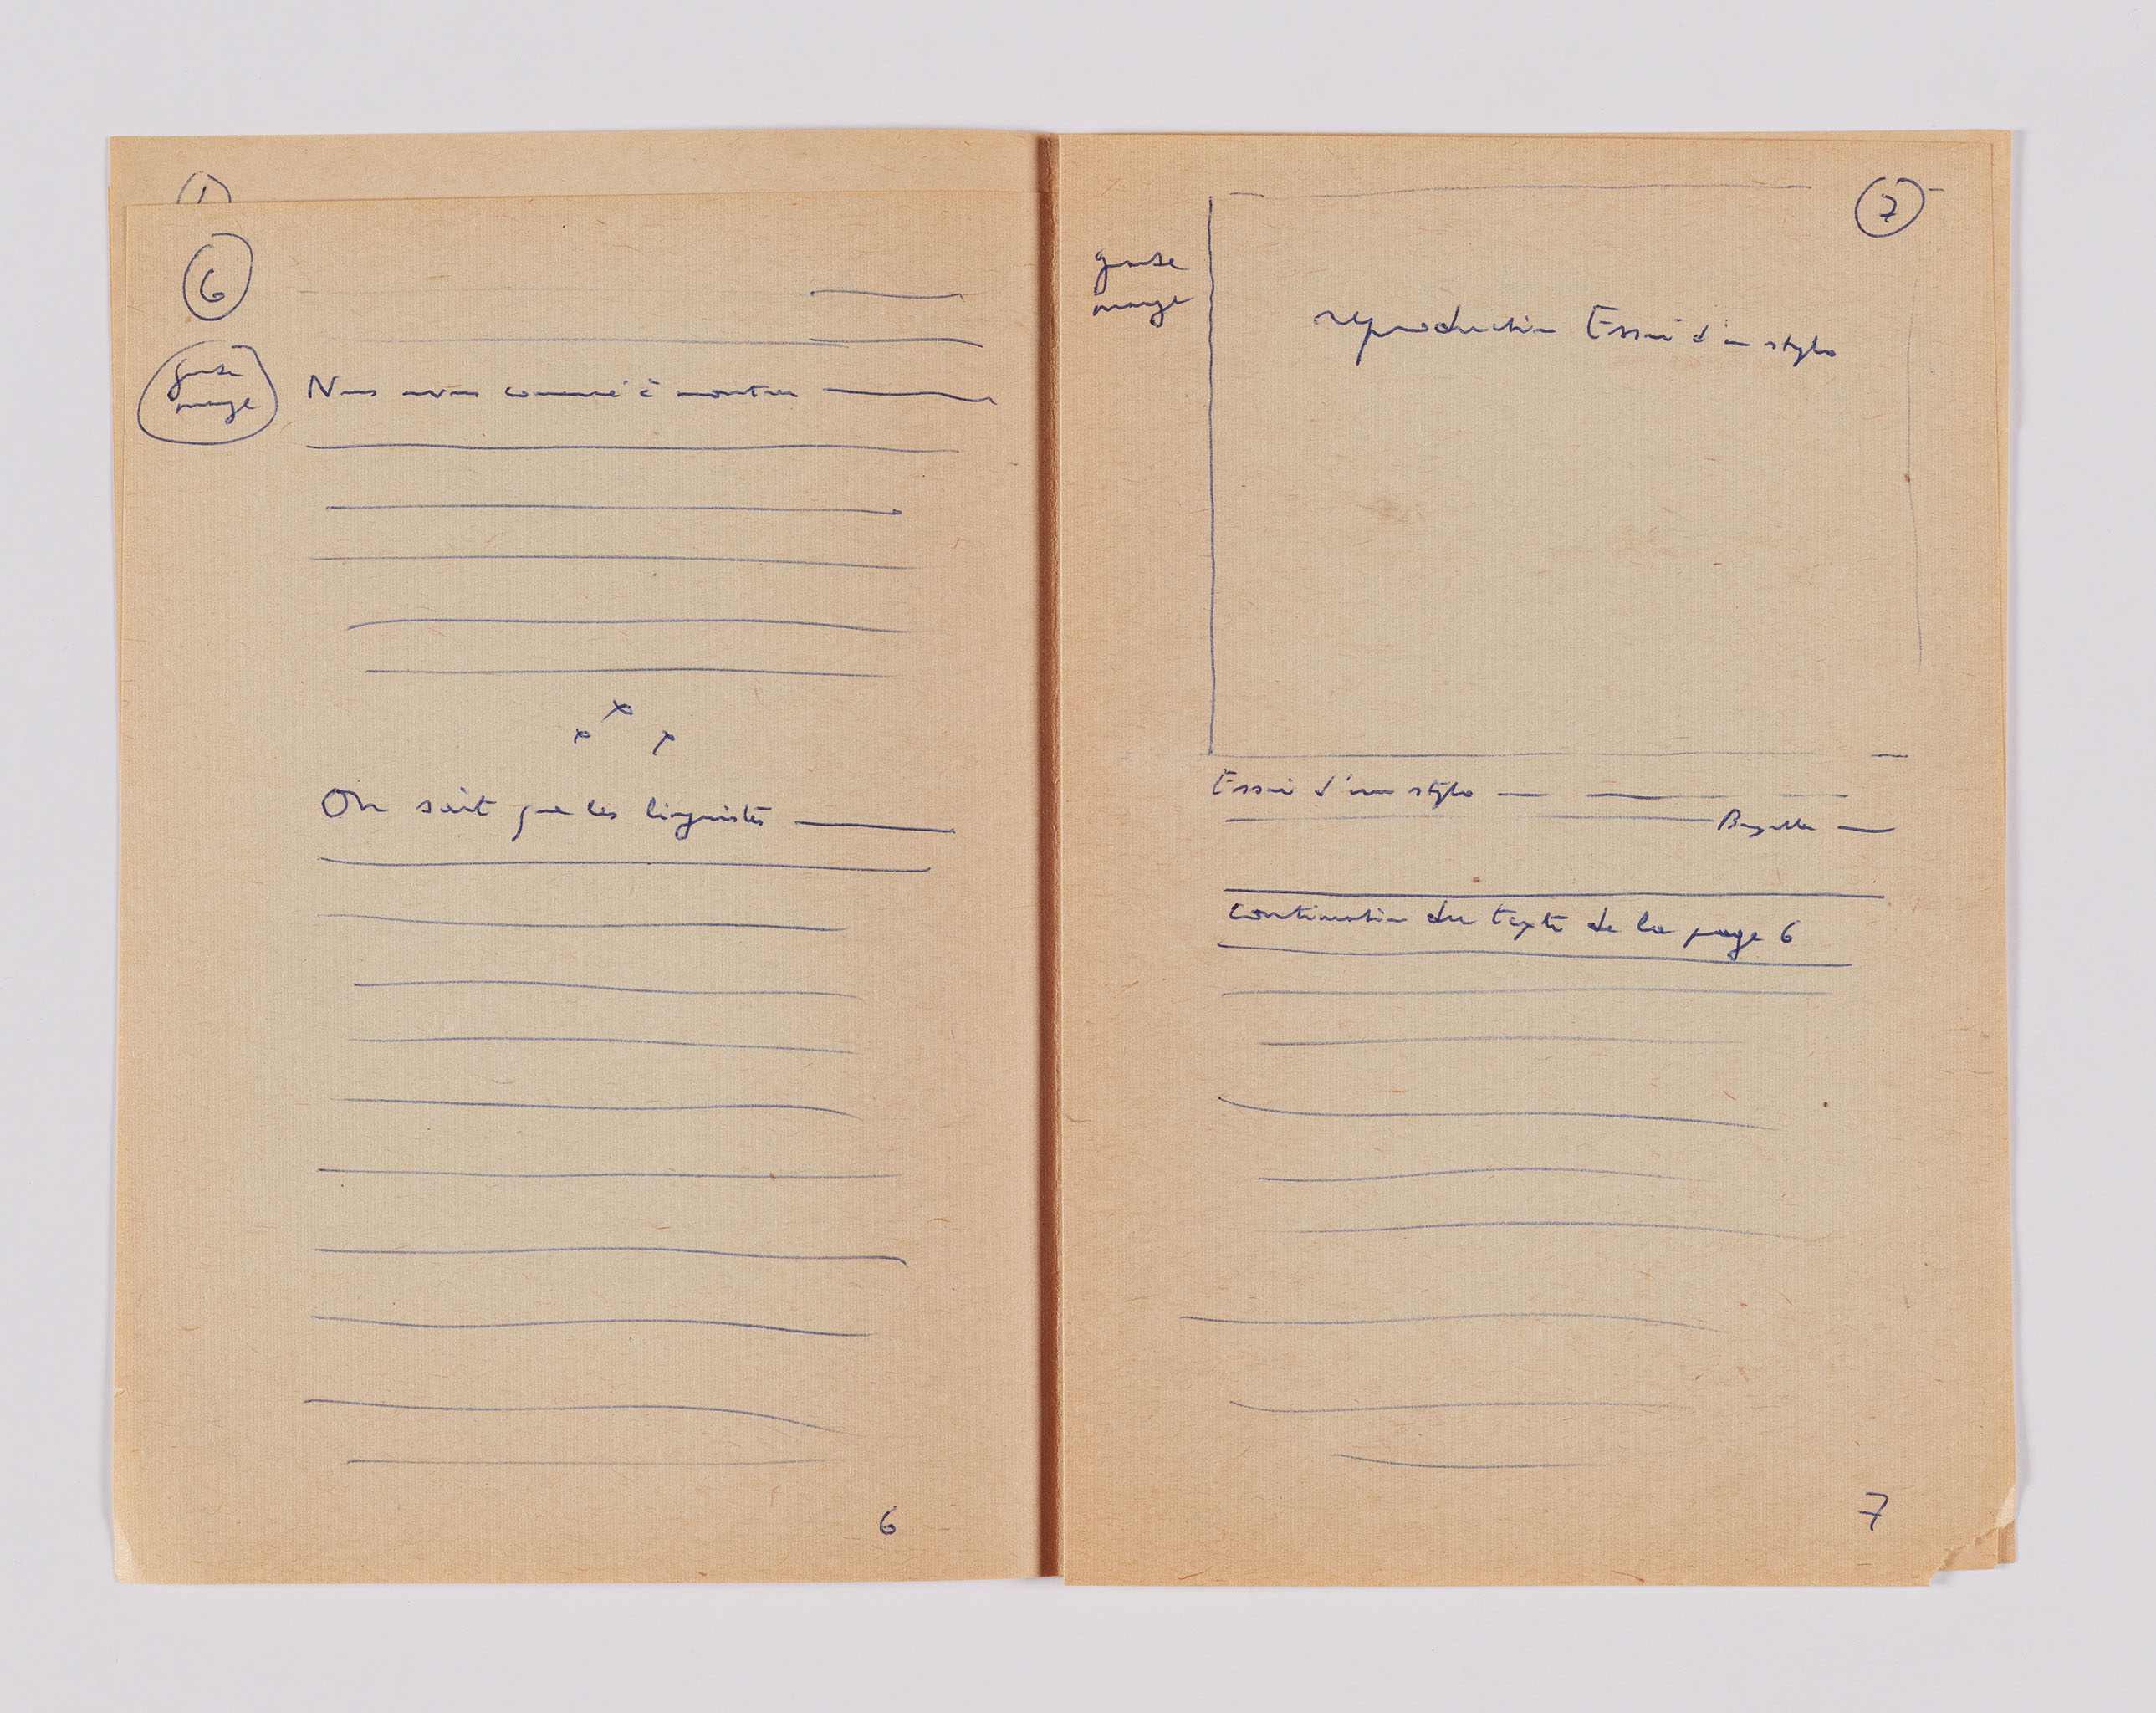 6
grande
marge
Nous avons commencé à montrer
On sait que les linguistes
6
7
grande
marge
reproduction Essai d'un stylo
Essai d'un stylo
Bruxelles
continuation du texte de la page 6
7